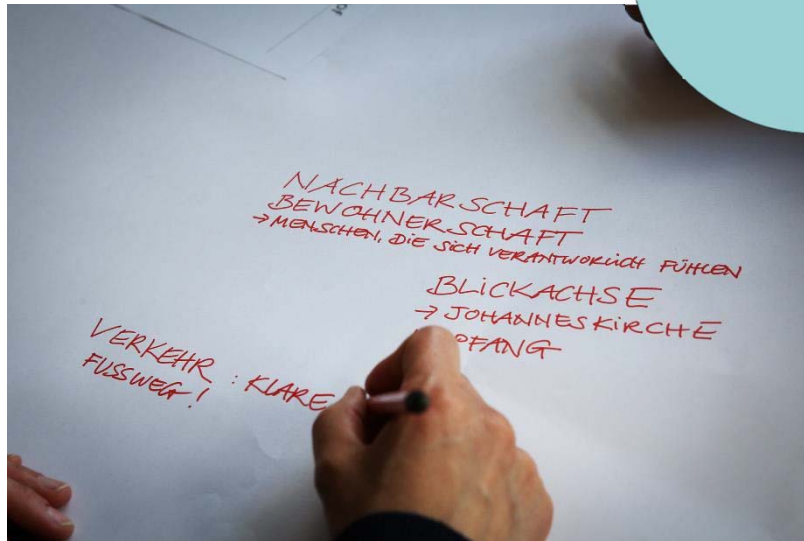 NACHBARSCHAFT
BEWOHNERSCHAFT
→ MENSCHEN, DIE SICH VERANTWORLICH FÜHLEN
BLICKACHSE
→ JOHANNESKIRCHE
VERKEHR : KLARE
FUSSWEG!